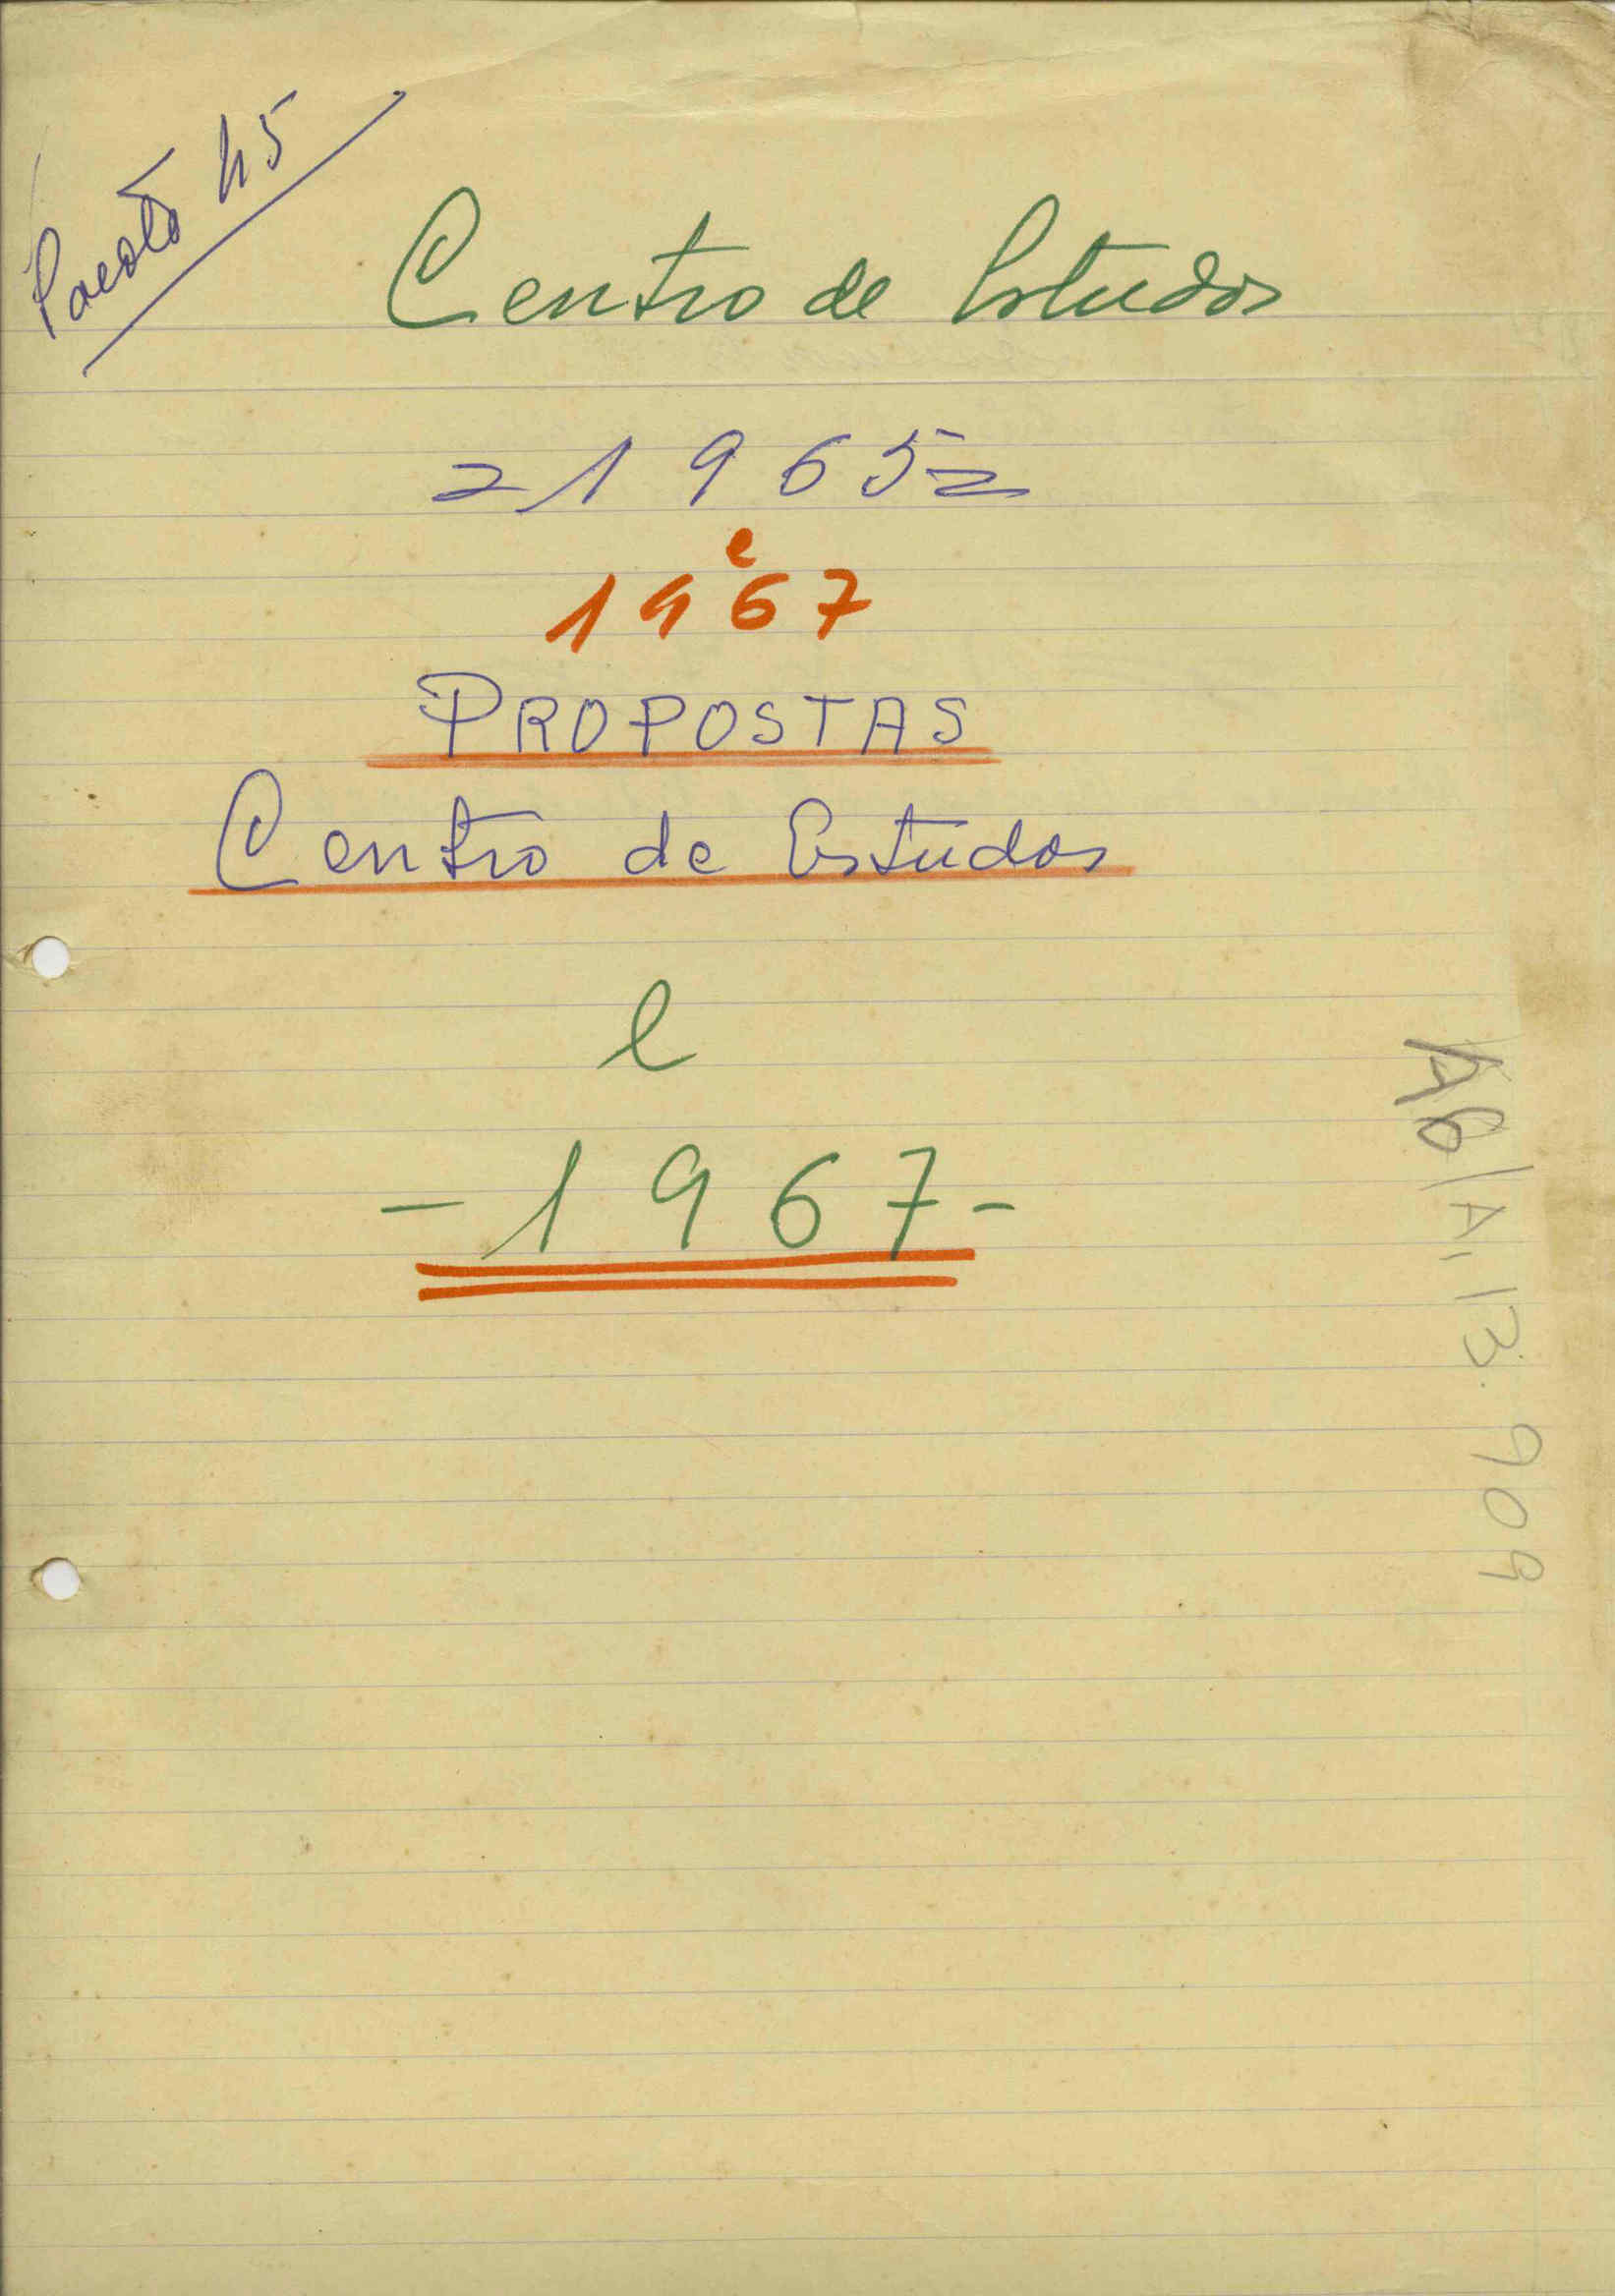 Pacote 45
Centro de Estudos
= 1965 =
e
1967
PROPOSTAS
Centro de Estudos
e
- 1967 -
AB/A, 13. 909